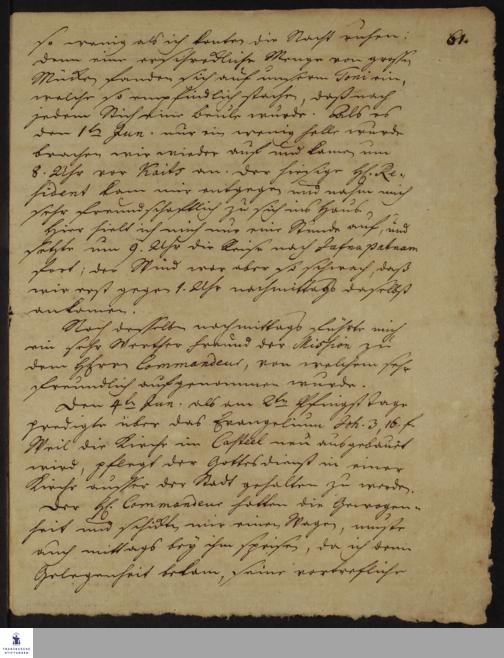 61.
so wenig als ich konten die Nacht ruhen:
denn eine erschreckliche Menge von grossen
Mücken fanden sich auf unserm Toni ein,
welche so empfindlich stachen, daß nach
jedem Stich eine Beule wurde. Als es
den 1ten Jun. nur ein wenig helle wurde
brachen wir wieder auf und kamen um
8. Uhr vor Kaits an. Der hiesige H. Re-
sident kam mir entgegen und nahm mich
sehr freundschaftlich zu sich ins Haus.
Hier hielt ich mich nur eine Stunde auf, und
setzte um 9. Uhr die Reise nach Jafnapatnam
fort; der Wind war aber so schwach, daß
wir erst gegen 1. Uhr nachmittags daselbst
ankamen.
Noch desselben nachmittags führte mich
ein sehr Werther Freund der Mission zu
dem Herrn Commandeur, von welchem sehr
freundlich aufgenommen wurde.
Den 4ten Jun. als am 2ten Pfingst Tage
predigte über das Evangelium Joh. 3, 16. f.
Weil die Kirche im Castel neu ausgebauet
wird, pflegt der Gottesdienst in einer
Kirche ausser der Stadt gehalten zu werden.
Der H. Commandeur hatten die Gewogen-
heit und schickten mir einen Wagen, muste
auch mittags bey ihm speisen, da ich denn
Gelegenheit bekam, seine vortrefliche
FRANCKESCHE
STIFTUNGEN